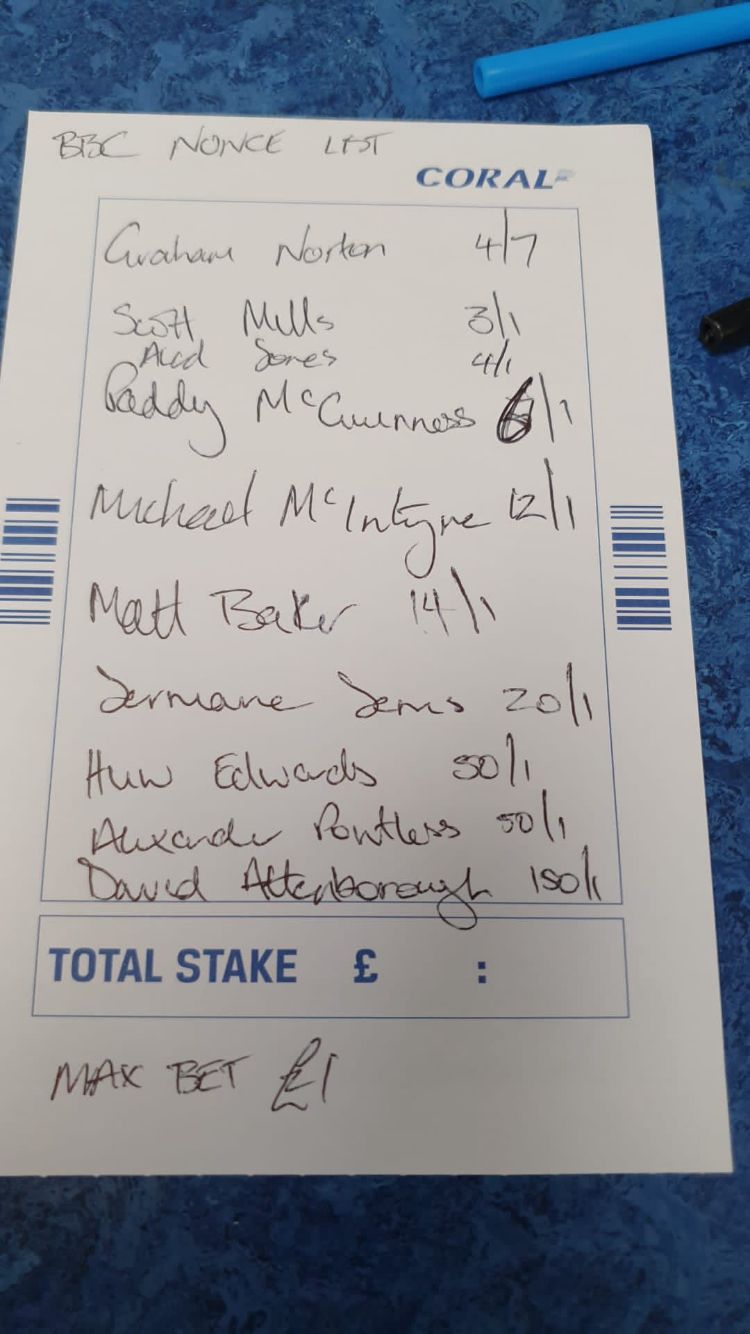 BBC NONCE LIST
CORAL
Graham Norton 4/7
Scott Mills 3/1
Aled Jones 4/1
Paddy McGuinness 6/1
Michael McIntyre 12/1
Matt Baker 14/1
Jermaine Jenas 20/1
Huw Edwards 50/1
Alexander Pointless 50/1
David Attenborough 150/1
TOTAL STAKE £ :
MAX BET £1